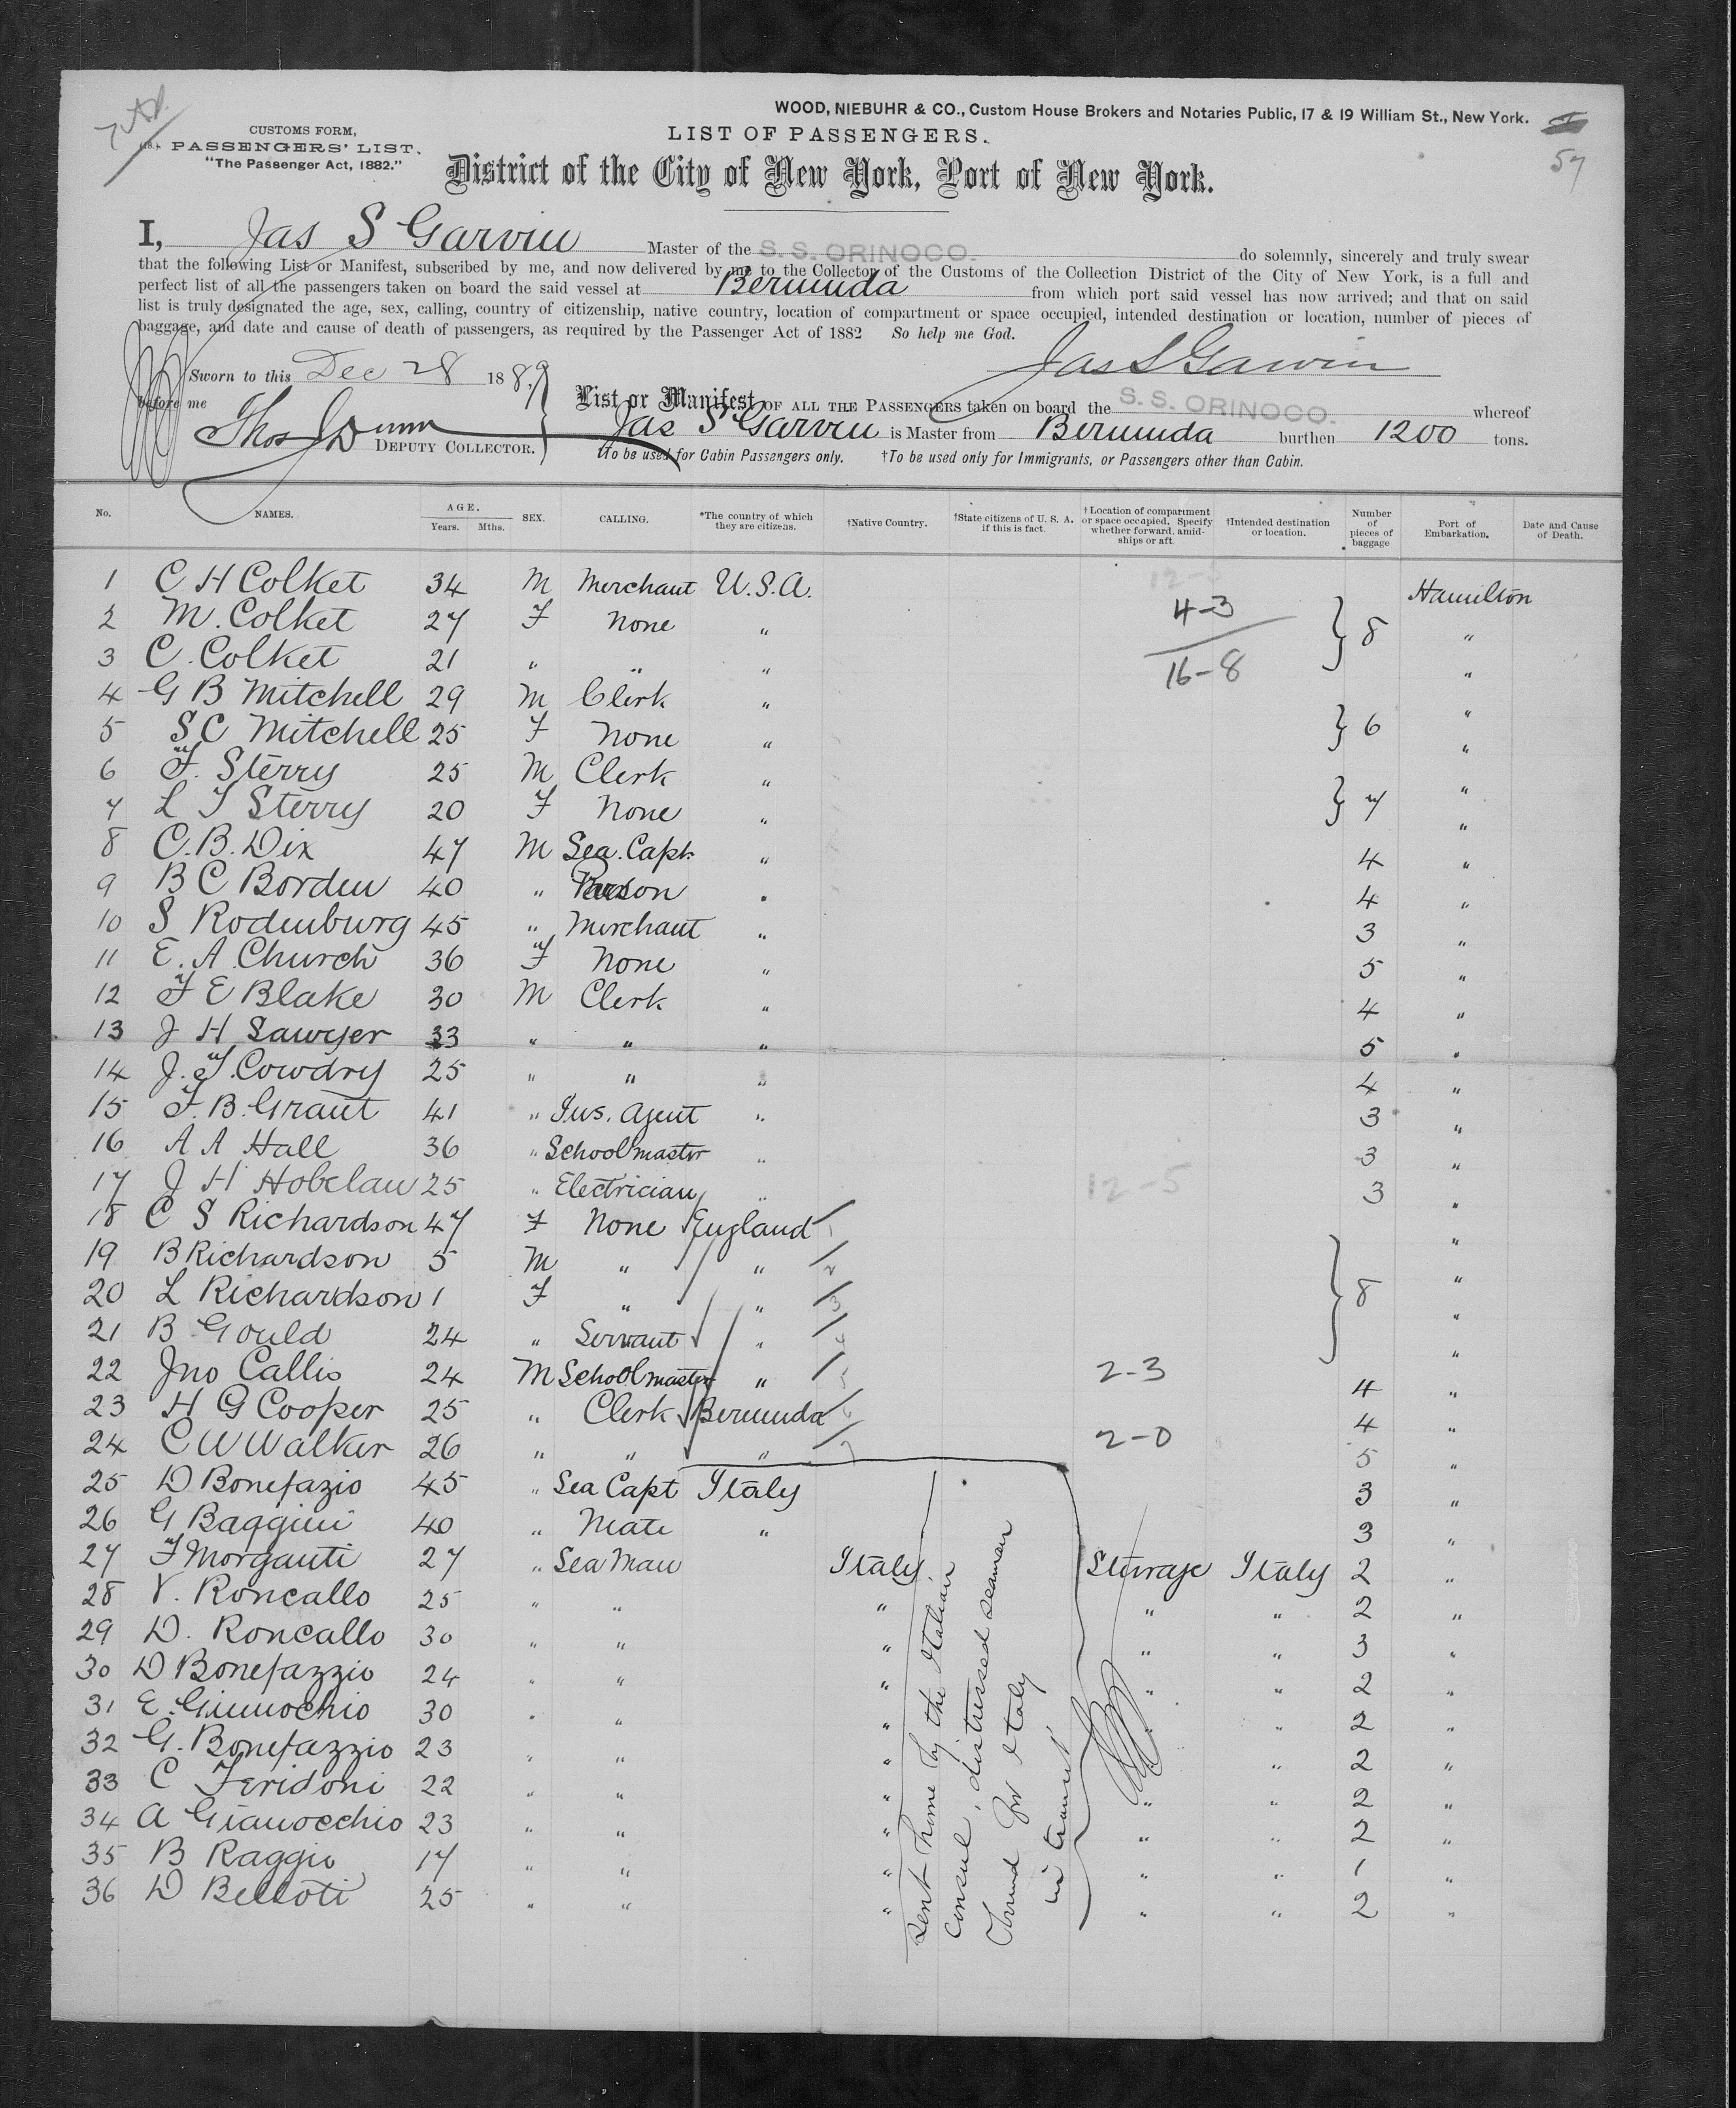 WOOD, NIEBUHR & CO., Custom House Brokers and Notaries Public, 17 & 19 William St., New York.
57
CUSTOMS FORM,
PASSENGERS' LIST.
"The Passenger Act, 1882."
LIST OF PASSENGERS.
District of the City of New York, Port of New York.
I, Jas S Garvin Master of the S. S. ORINOCO. do solemnly, sincerely and truly swear
that the following List or Manifest, subscribed by me, and now delivered by me to the Collector of the Customs of the Collection District of the City of New York, is a full and
perfect list of all the passengers taken on board the said vessel at Bermuda from which port said vessel has now arrived; and that on said
list is truly designated the age, sex, calling, country of citizenship, native country, location of compartment or space occupied, intended destination or location, number of pieces of
baggage, and date and cause of death of passengers, as required by the Passenger Act of 1882 So help me God.
Jas S Garvin
Sworn to this Dec 28 1889
before me
Thos J Dunn DEPUTY COLLECTOR.
List or Manifest OF ALL THE PASSENGERS taken on board the S. S. ORINOCO. whereof
Jas S Garvin is Master from Bermuda burthen 1200 tons.
*To be used for Cabin Passengers only. †To be used only for Immigrants, or Passengers other than Cabin.
No. NAMES. AGE. Years. Mths. SEX. CALLING. *The country of which they are citizens. †Native Country. †State citizens of U. S. A. if this is fact. †Location of compartment or space occupied. Specify whether forward, amidships or aft. †Intended destination or location. Number of pieces of baggage Port of Embarkation. Date and Cause of Death.
1 C H Colket 34 M Merchant U.S.A. Hamilton
2 M. Colket 27 F None " 4-3 8 "
3 C. Colket 21 " " " 16-8 "
4 G B Mitchell 29 M Clerk " "
5 S C Mitchell 25 F None " 6 "
6 F. Sterry 25 M Clerk " "
7 L F Sterry 20 F None " 7 "
8 C. B. Dix 47 M Sea. Capt. " 4 "
9 B C Borden 40 " " 4 "
10 S Rodenburg 45 " Merchant " 3 "
11 E. A. Church 36 F None " 5 "
12 F E Blake 30 M Clerk " 4 "
13 J H Sawyer 33 " " " 5 "
14 J. F. Cowdry 25 " " " 4 "
15 F. B. Grant 41 " Ins. Agent " 3 "
16 A A Hall 36 " Schoolmaster " 3 "
17 J H Hobelau 25 " Electrician " 12-5 3 "
18 C S Richardson 47 F None England 1 "
19 B Richardson 5 M " " 2 "
20 L Richardson 1 F " " 3 8 "
21 B Gould 24 " Servant " 4 "
22 Jno Callis 24 M Schoolmaster " 5 2-3 4 "
23 H G Cooper 25 " Clerk Bermuda 6 4 "
24 C W Walker 26 " " " 7 2-0 5 "
25 D Bonefazio 45 " Sea Capt Italy 3 "
26 G Baggini 40 " Mate " 3 "
27 F Morganti 27 " Sea Man Italy Steerage Italy 2 "
28 V. Roncallo 25 " " " " " 2 "
29 D. Roncallo 30 " " " " " 3 "
30 D Bonefazzio 24 " " " " " 2 "
31 E. Ginnochio 30 " " " " " 2 "
32 G. Bonefazzio 23 " " " " 2 "
33 C Feridoni 22 " " " " " 2 "
34 A Gianocchio 23 " " " " " 2 "
35 B Raggio 17 " " " " " 1 "
36 D Belloti 25 " " " " " 2 "
Sent home by the Italian
Consul, distressed seamen
bound for Italy
in transit